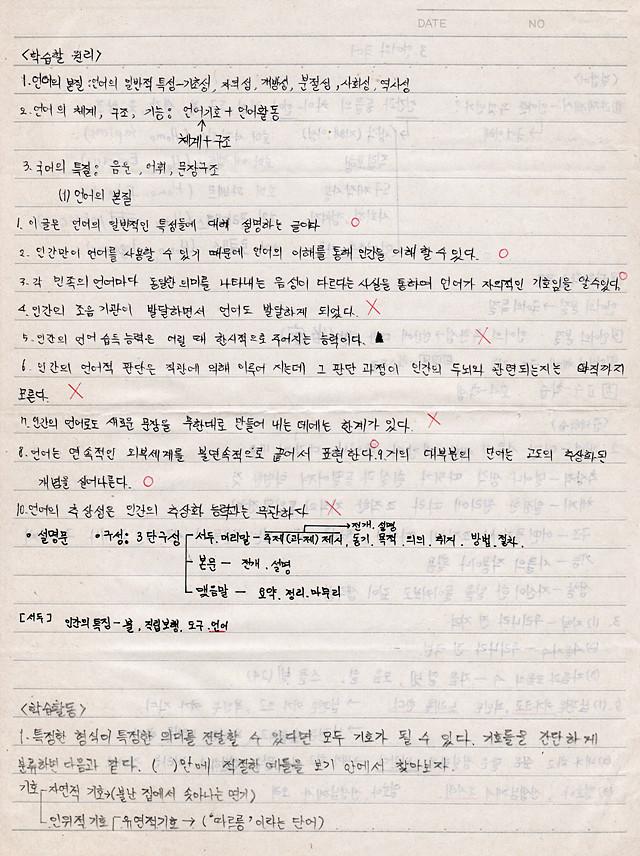 DATE NO
<학습할 원리>
1. 언어의 본질 : 언어의 일반적 특성-기호성, 자의성, 개방성, 분절성, 사회성, 역사성
2. 언어의 체계, 구조, 기능: 언어기호 + 언어활동
↑
체계+구조
3. 국어의 특질: 음운, 어휘, 문장구조
(1) 언어의 본질
1. 이 글은 언어의 일반적인 특성들에 대해 설명하는 글이다 O
2. 인간만이 언어를 사용할 수 있기 때문에 언어의 이해를 통해 인간을 이해 할 수 있다. O
3. 각 민족의 언어마다 동일한 의미를 나타내는 음성이 다르다는 사실을 통하여 언어가 자의적인 기호임을 알 수 있다. O
4. 인간의 조음 기관이 발달하면서 언어도 발달하게 되었다. X
5. 인간의 언어 습득 능력은 어릴 때 한시적으로 주어지는 능력이다. X
6. 인간의 언어적 판단은 직관에 의해 이루어 지는데 그 판단 과정이 인간의 두뇌와 관련 되는지는 아직까지
모른다. X
7. 인간의 언어로도 새로운 문장을 무한대로 만들어 내는 데에는 한계가 있다. X
8. 언어는 연속적인 외부세계를 불연속적으로 끊어서 표현한다. O 9. 거의 대부분의 단어는 고도의 추상화된
개념을 실어나른다. O
10. 언어의 추상성은 인간의 추상화 능력과는 무관하다 X
→전개. 설명
• 설명문 •구성: 3단구성 서두. 머리말 - 주제(과제) 제시, 동기. 목적. 의의. 취지. 방법. 절차.
본문 - 전개. 설명
맺음말 - 요약. 정리. 마무리
[서두] 인간의 특징 - 불, 직립보행, 도구, 언어
<학습활동>
1. 특정한 형식이 특정한 의미를 전달할 수 있다면 모두 기호가 될 수 있다. 기호들을 간단하게
분류하면 다음과 같다. ( )안에 적절한 예들을 보기 안에서 찾아보자.
기호 자연적 기호 (불난 집에서 솟아나는 연기)
인위적 기호 유연적기호 → ("따르릉"이라는 단어)